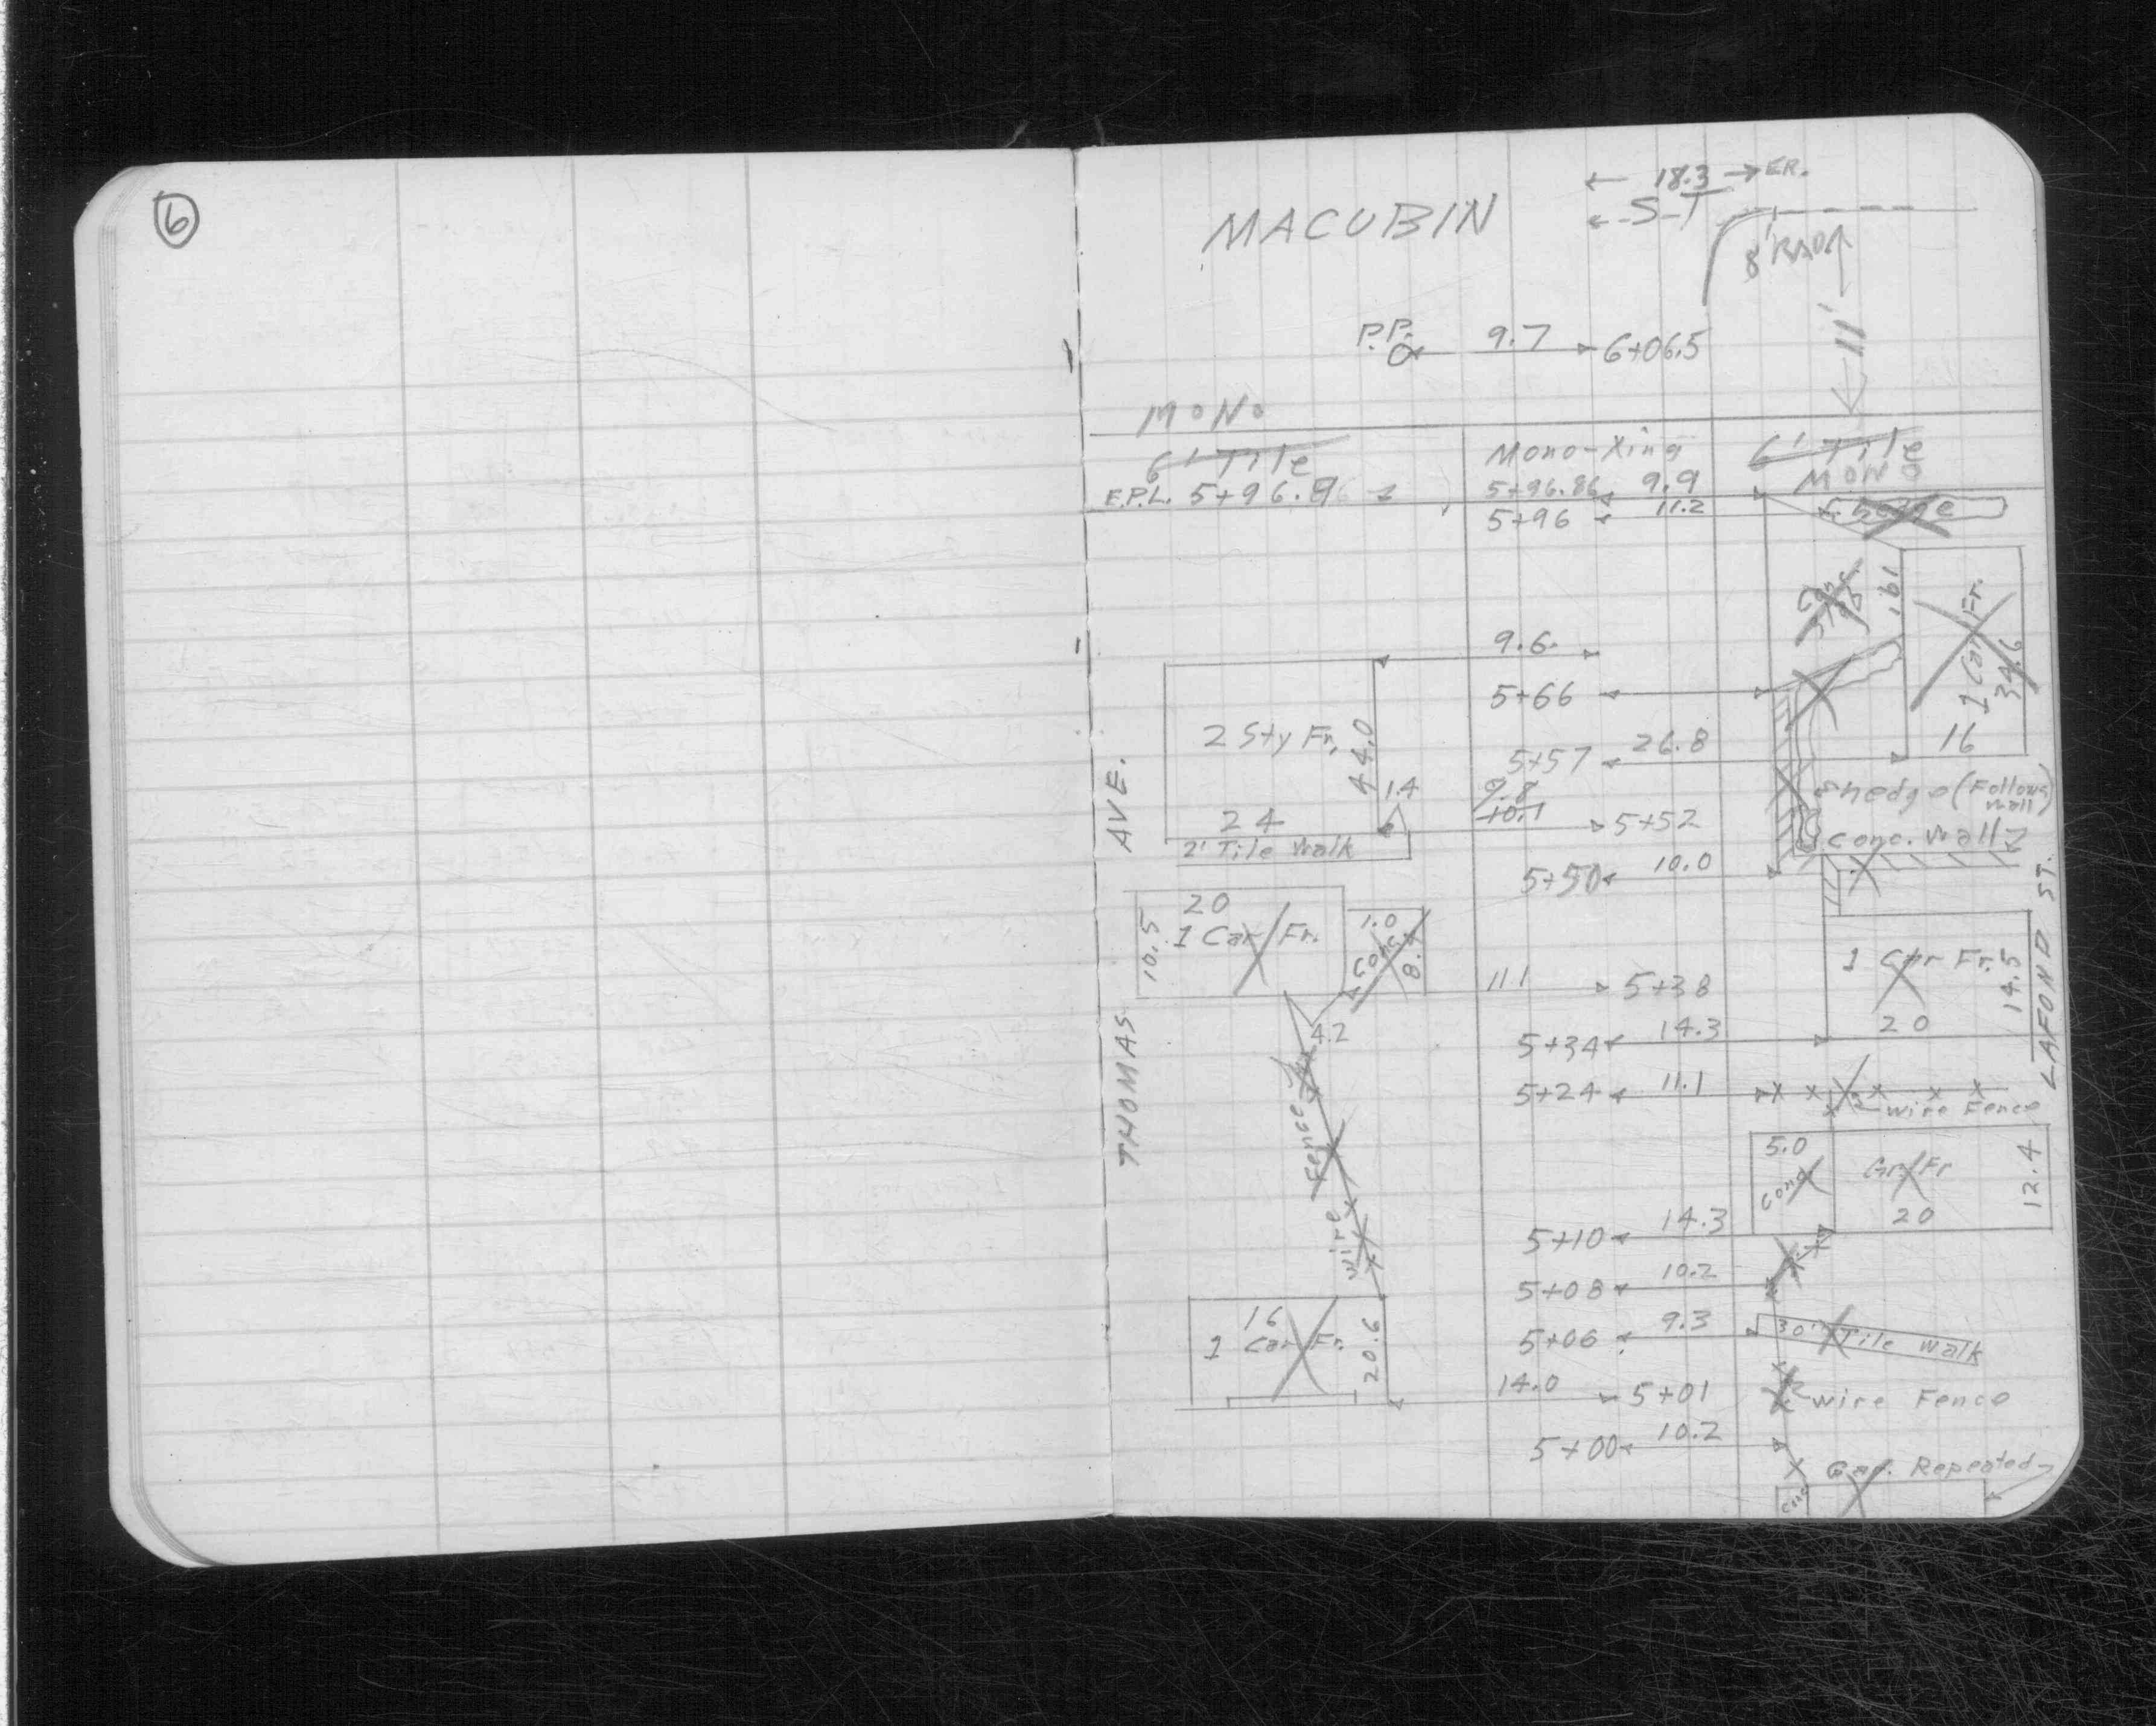 6
← 18.3 → ER.
MACUBIN
← S-T
8' RAD
11'
P.P. 9.7 6+06.5
MONO
6' Tile Mono-Xing 6' Tile
MONO
E.P.L. 5+96.86 5+96.86 9.9
5+96 11.2 hedge
Conc. Slab
19.1
1 Car Fr.
34.6
16
9.6
5+66
2 Sty Fr.
44.0
5+57 26.8
1.4
9.8
10.1
hedge (Follows wall)
24 5+52
Conc. Wall
2' Tile Walk
5+50 10.0
AVE.
20
1 Car Fr.
10.5
1.0
Conc.
8.4
1 Car Fr.
14.5
20
LAFOND ST.
11.1 5+38
4.2
5+34 14.3
THOMAS
5+24 11.1
Wire Fence
wire Fence
5.0
Conc
Gr. Fr
12.4
20
5+10 14.3
5+08 10.2
16
1 Car Fr.
20.6
5+06 9.3 30" Tile Walk
14.0 5+01
wire Fence
5+00 10.2
Gar. Repeated
Conc